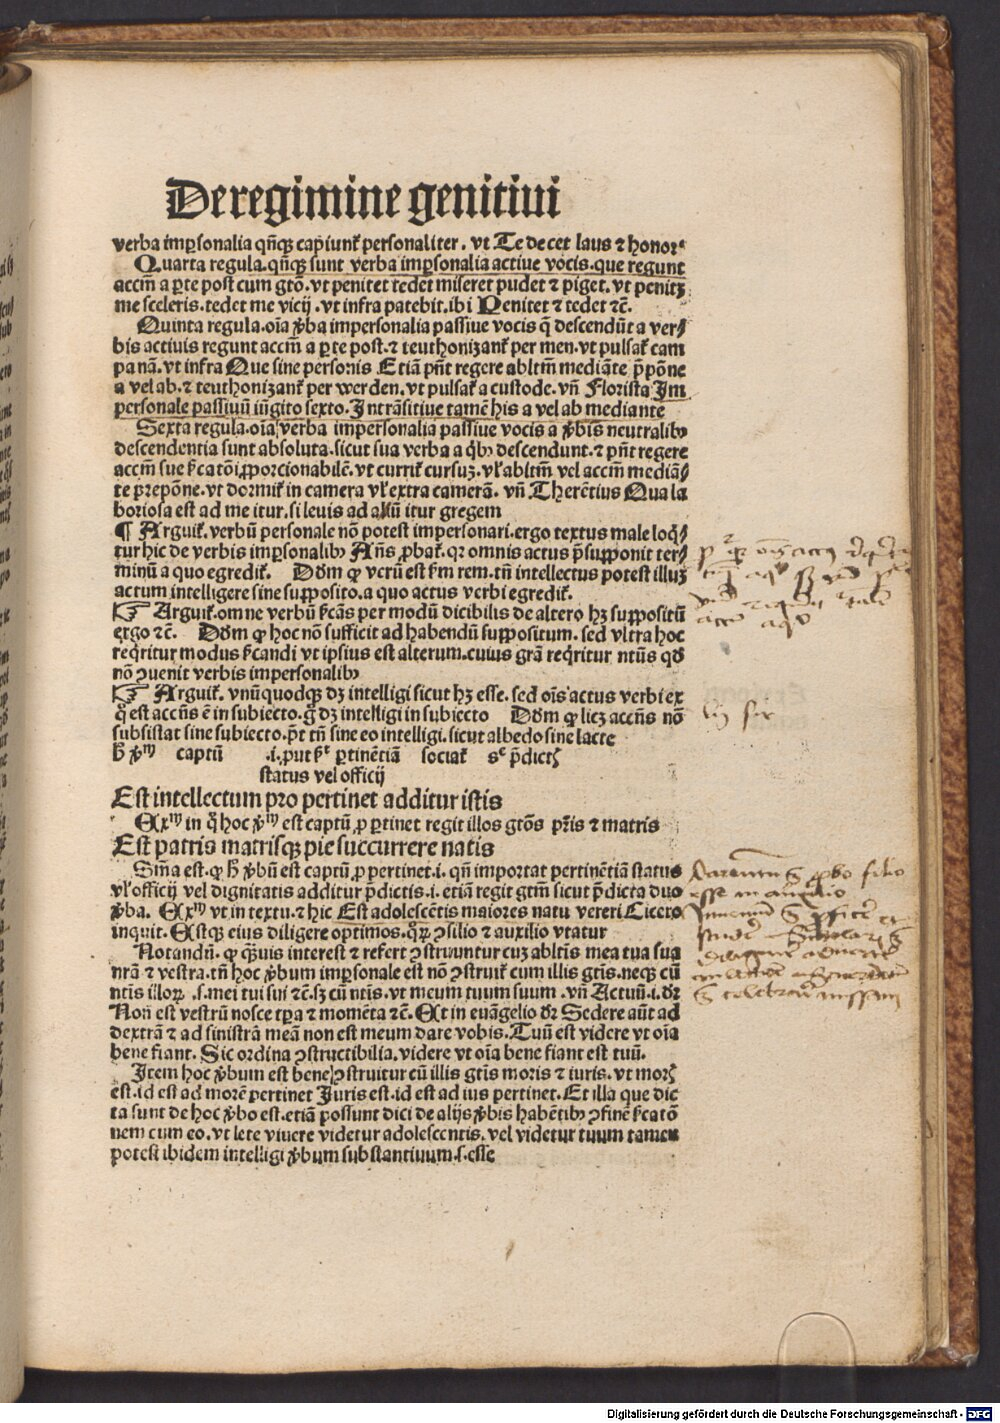 De regimine genitiui
verba imꝑsonalia qñqꝫ capiunť personaliter. vt Te decet laus ⁊ honor
Quarta regula. qñqꝫ sunt verba imꝑsonalia actiue vocis. que regunt
accm̃ a ꝑte post cum gtõ. vt penitet tedet miseret pudet ⁊ piget. vt penitꝫ
me sceleris. tedet me vicij. vt infra patebit. ibi Penitet ⁊ tedet ⁊c̃.
Quinta regula. oĩa ꝟba impersonalia passiue vocis q̃ descendũt a ver⸗
bis actiuis regunt accm̃ a ꝑte post. ⁊ teuthonizanť per men. vt pulsať cam
panã. vt infra Que sine personis Etiã pñt regere abltm̃ mediãte p̃põne
a vel ab. ⁊ teuthonizanť per werden. vt pulsať a custode. vñ Florista Im
personale passiuũ iũgito sexto. Intrãsitiue tamẽ his a vel ab mediante
Sexta regula. oĩa verba impersonalia passiue vocis a ꝟbis neutralibꝰ
descendentia sunt absoluta. sicut sua verba a q̃bꝰ descendunt. ⁊ pñt regere
accm̃ sue ẜcatõi ꝓporcionabilẽ. vt curriť cursuꝫ. vľ abltm̃ vel accm̃ mediã⸗
te prepõne. vt dormiť in camera vľ extra camerã. vñ Therẽtius Qua la
boriosa est ad me itur. si leuis ad aliũ itur gregem
¶ Arguiť. verbũ personale nõ potest impersonari. ergo textus male loq̃⸗
tur hic de verbis imꝑsonalibꝰ Añs ꝓbať. qꝛ omnis actus p̃supponit ter⸗
minũ a quo egrediť. Dõm ꝙ verũ est ẜm rem. tñ intellectus potest illuꝫ
actum intelligere sine supposito. a quo actus verbi egrediť.
☞ Arguiť. omne verbũ ẜcãs per modũ dicibilis de altero hꝫ suppositũ
ergo ⁊c̃. Dõm ꝙ hoc nõ sufficit ad habendũ suppositum. sed vltra hoc
req̃ritur modus ẜcandi vt ipsius est alterum. cuius grã req̃ritur ntũs qđ
nõ ꝯuenit verbis impersonalibꝰ
☞ Arguiť. vnũquodqꝫ dꝫ intelligi sicut hꝫ esse. sed oĩs actus verbi ex
q̃ est accñs ẽ in subiecto. g̃ dꝫ intelligi in subiecto Dõm ꝙ licꝫ accñs nõ
subsistat sine subiecto. põt tñ sine eo intelligi. sicut albedo sine lacte
h̃ ꝟᵐ captũ .i. put ẜᵗ ꝑtinẽtiã sociať sᶜ p̃dictꝭ
status vel officij
Est intellectum pro pertinet additur istis
Exᵐ in q̃ hoc ꝟᵐ est captũ ꝓ ꝑtinet regit illos gtõs pr̃is ⁊ matris
Est patris matrisqꝫ pie succurrere natis
Sĩna est. ꝙ h̃ ꝟbũ est captũ ꝓ pertinet. i. qñ importat pertinẽtiã status
vľ officij vel dignitatis additur p̃dictis. i. etiã regit gtm̃ sicut p̃dicta duo
ꝟba. Exᵐ vt in textu. ⁊ hic Est adolescẽtis maiores natu vereri Cicero
inquit. Estqꝫ eius diligere optimos. qͦꝝ ꝯsilio ⁊ auxilio vtatur
Notandũ. ꝙ q̃uis interest ⁊ refert ꝯstruuntur cuꝫ abltis mea tua sua
nrã ⁊ vestra. tñ hoc ꝟbum imꝑsonale est nõ ꝯstruiť cum illis gtĩs. neqꝫ cũ
ntĩs illoꝝ .s. mei tui sui ⁊c̃. sꝫ cũ ntĩs. vt meum tuum suum. vñ Actuũ. i. dr̃
Non est vestrũ nosce tꝑa ⁊ momẽta ⁊c̃. Et in euãgelio dr̃ Sedere aũt ad
dextrã ⁊ ad sinistrã meã non est meum dare vobis. Tuũ est videre vt oĩa
bene fiant. Sic ordina ꝯstructibilia. videre vt oĩa bene fiant est tuũ.
Item hoc ꝟbum est bene ꝯstruitur cũ illis gtĩs moris ⁊ iuris. vt morꝭ
est. id est ad morẽ pertinet Juris est. id est ad ius pertinet. Et illa que dic
ta sunt de hoc ꝟbo est. etiã possunt dici de alijs ꝟbis habẽtibꝰ ꝯfinẽ ẜcatõ
nem cum eo. vt lete viuere videtur adolescentis. vel videtur tuum tamen
potest ibidem intelligi ꝟbum substantiuum. s. esse
Digitalisierung gefördert durch die Deutsche Forschungsgemeinschaft - DFG